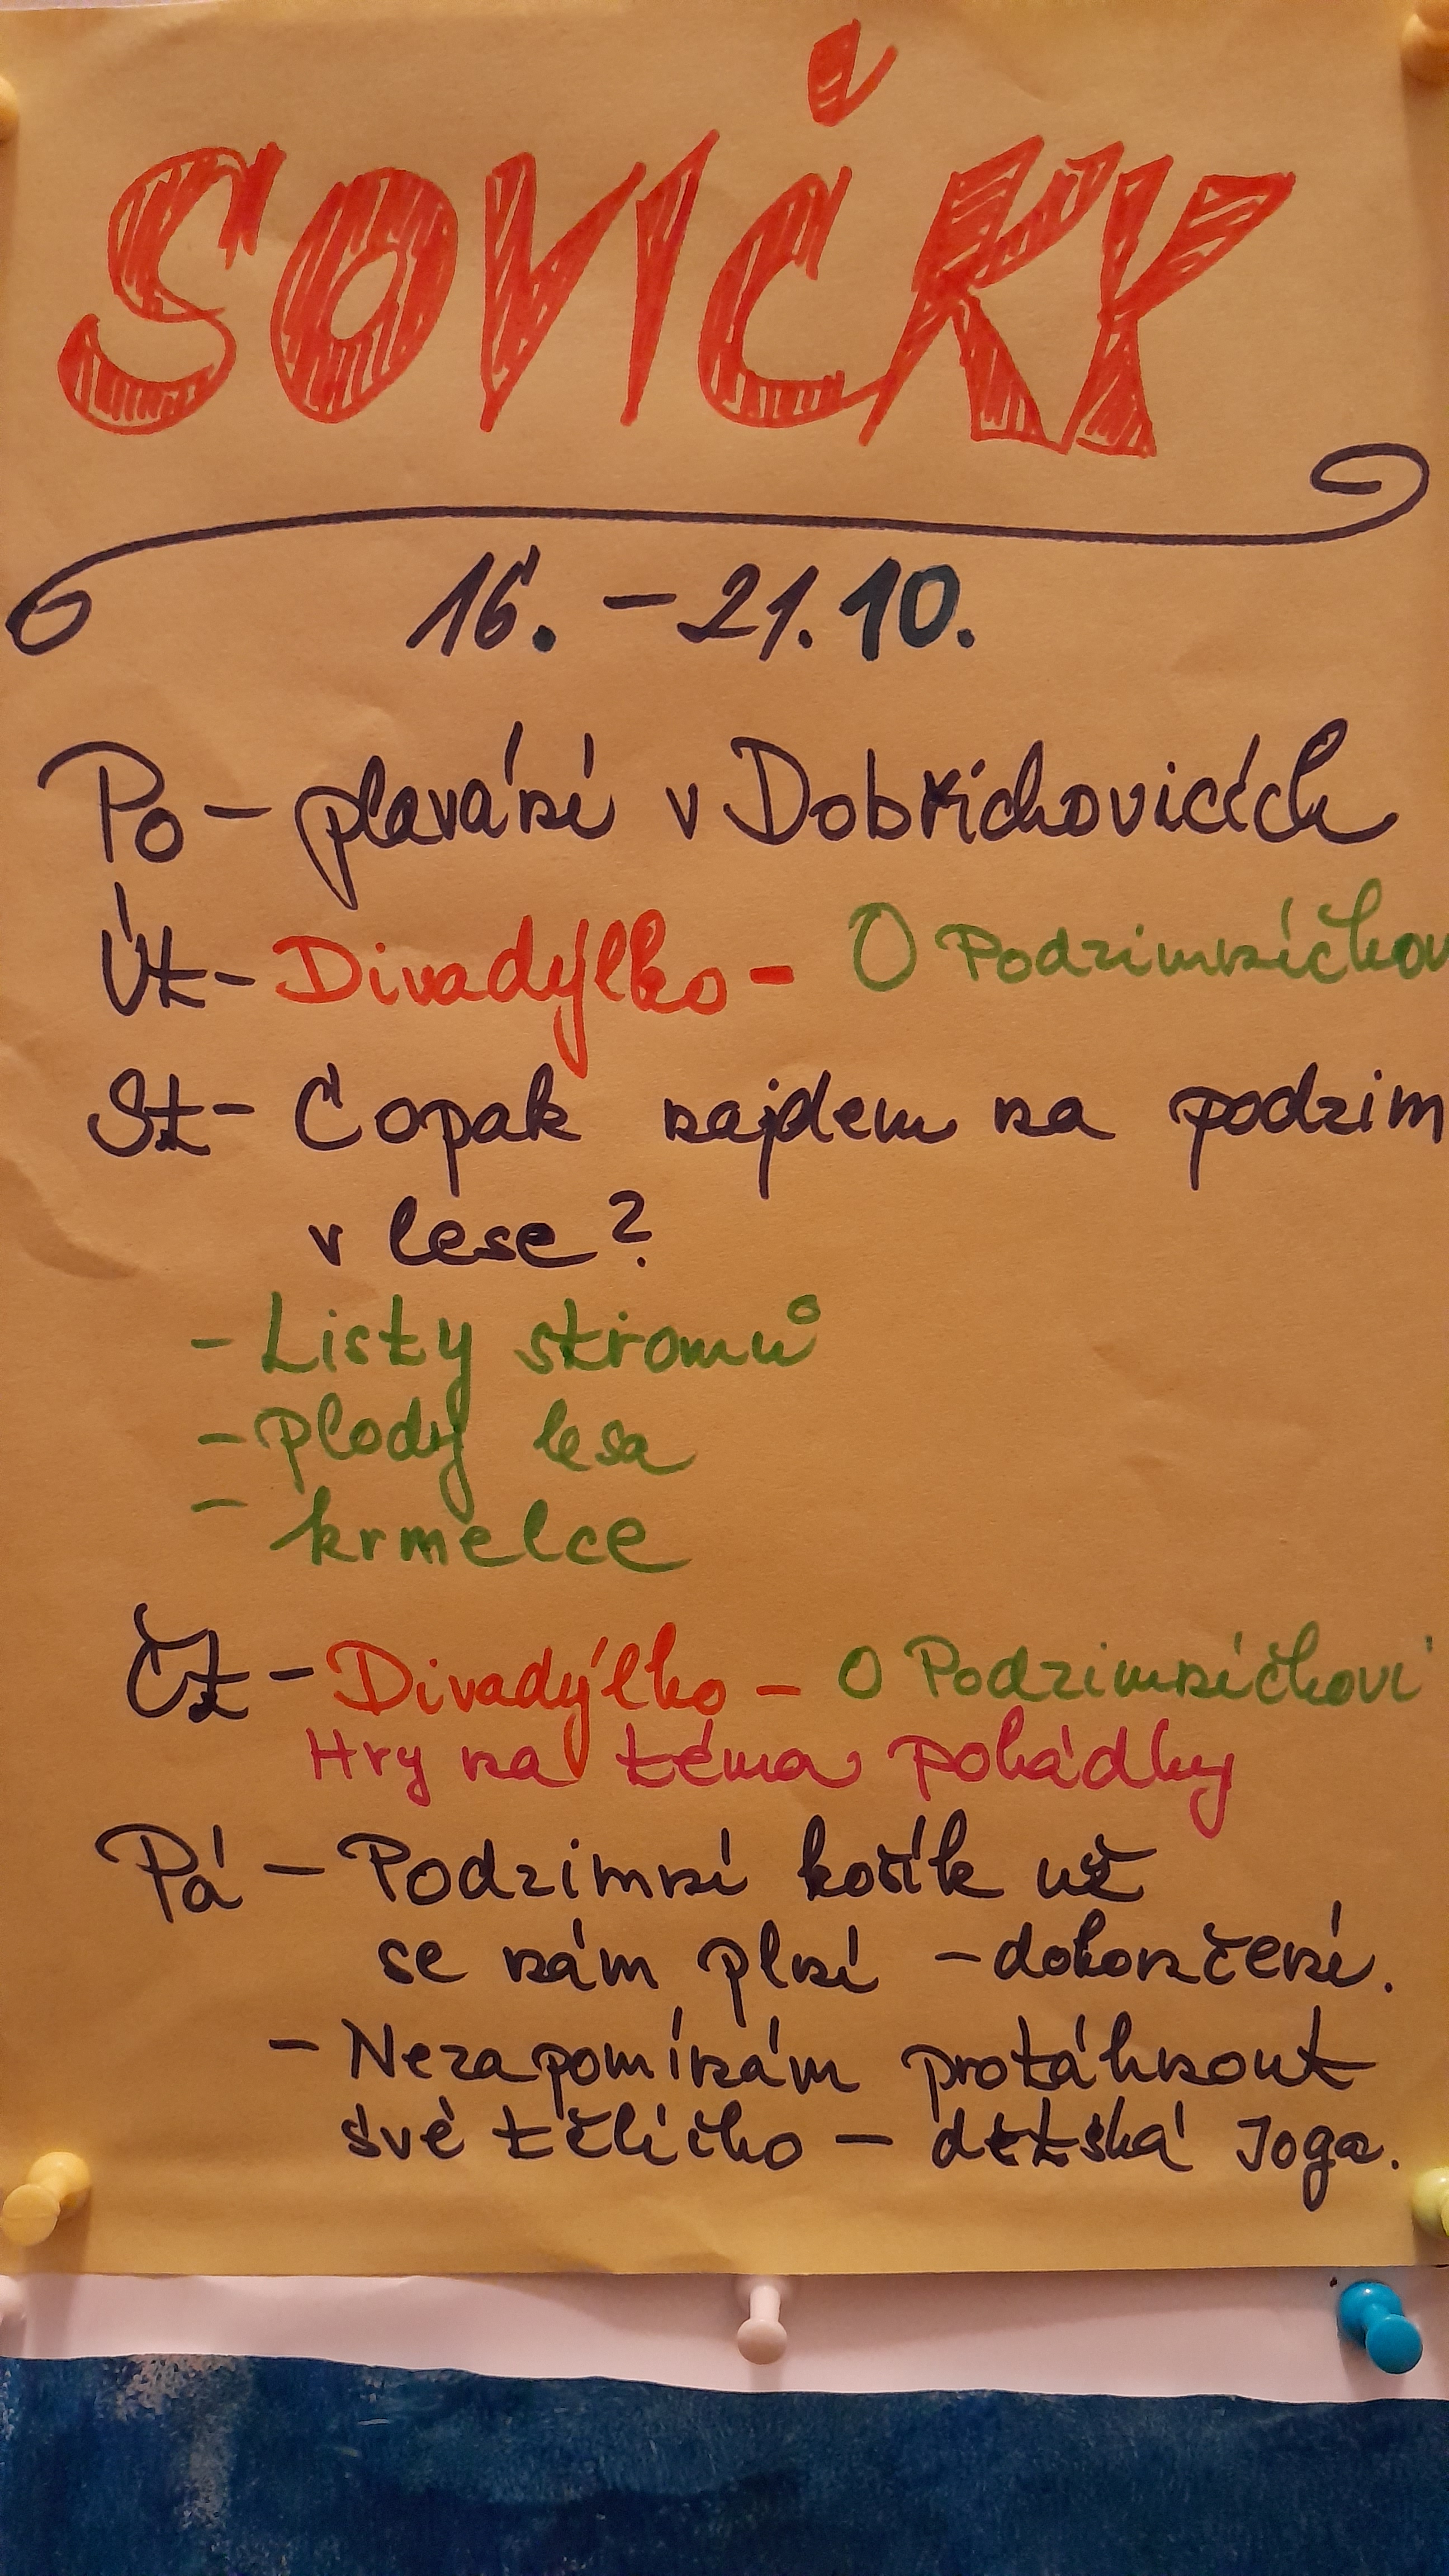 SOVIČKY
16. - 21. 10.
Po - plavání v Dobřichovicích
Út - Divadýlko - O Podzimníčkov
St - Copak najdem na podzim
v lese?
- Listy stromů
- plody lesa
- krmelce
Čt - Divadýlko - O Podzimníčkovi
Hry na téma pohádky
Pá - Podzimní košík už
se nám plní - dokončení.
- Nezapomínám protáhnout
své tělíčko - dětská Joga.